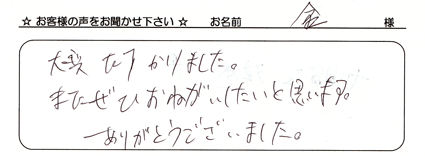 ☆ お客様の声をお聞かせ下さい ☆ お名前 金 様
大変 たすかりました。
またぜひおねがいしたいと思います。
ありがとうございました。